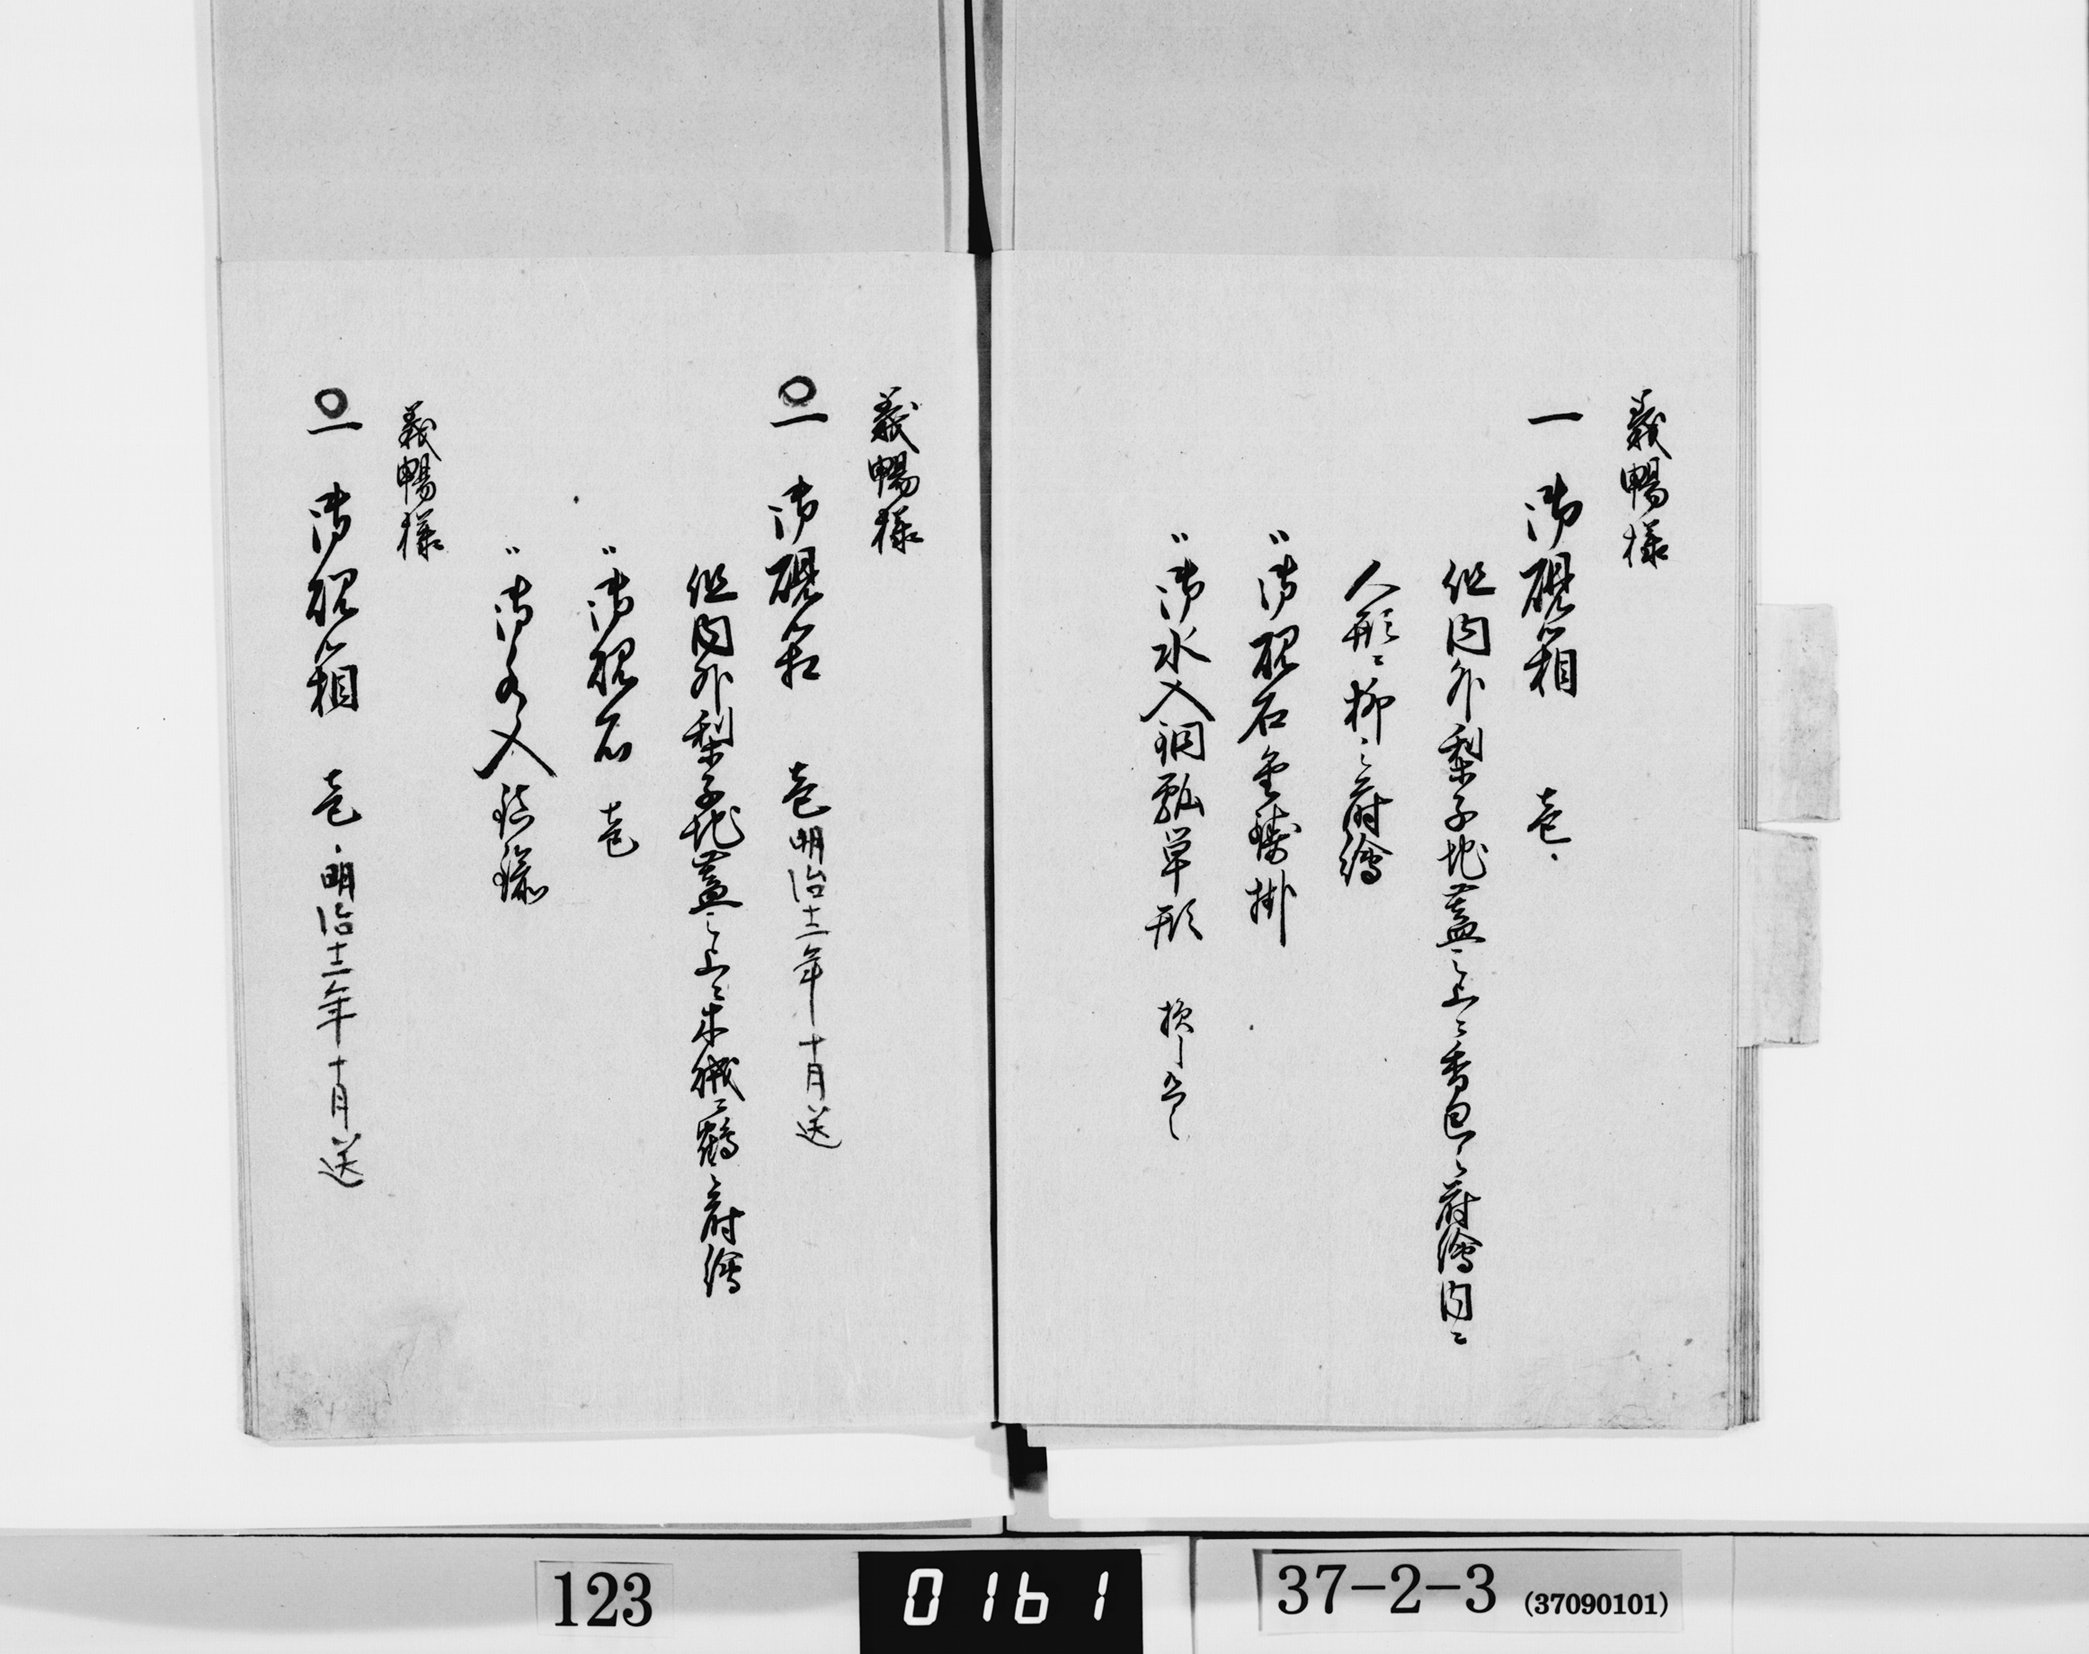 義暢様
一 御硯箱 壱
但内外梨子地蓋之上ニ香包之蒔繪内ニ
人形ニ柳之蒔繪
〃御硯石 掛
〃御水入銅瓢単形 損し
義暢様
〇一 御硯筥 壱 明治十二年十月送
但内外梨子地蓋之上ニ 鶴之蒔繪
〃御硯石 壱
〃御水入
義暢様
〇一 御硯箱 壱 明治十二年十月送
123
0161
37-2-3 (37090101)